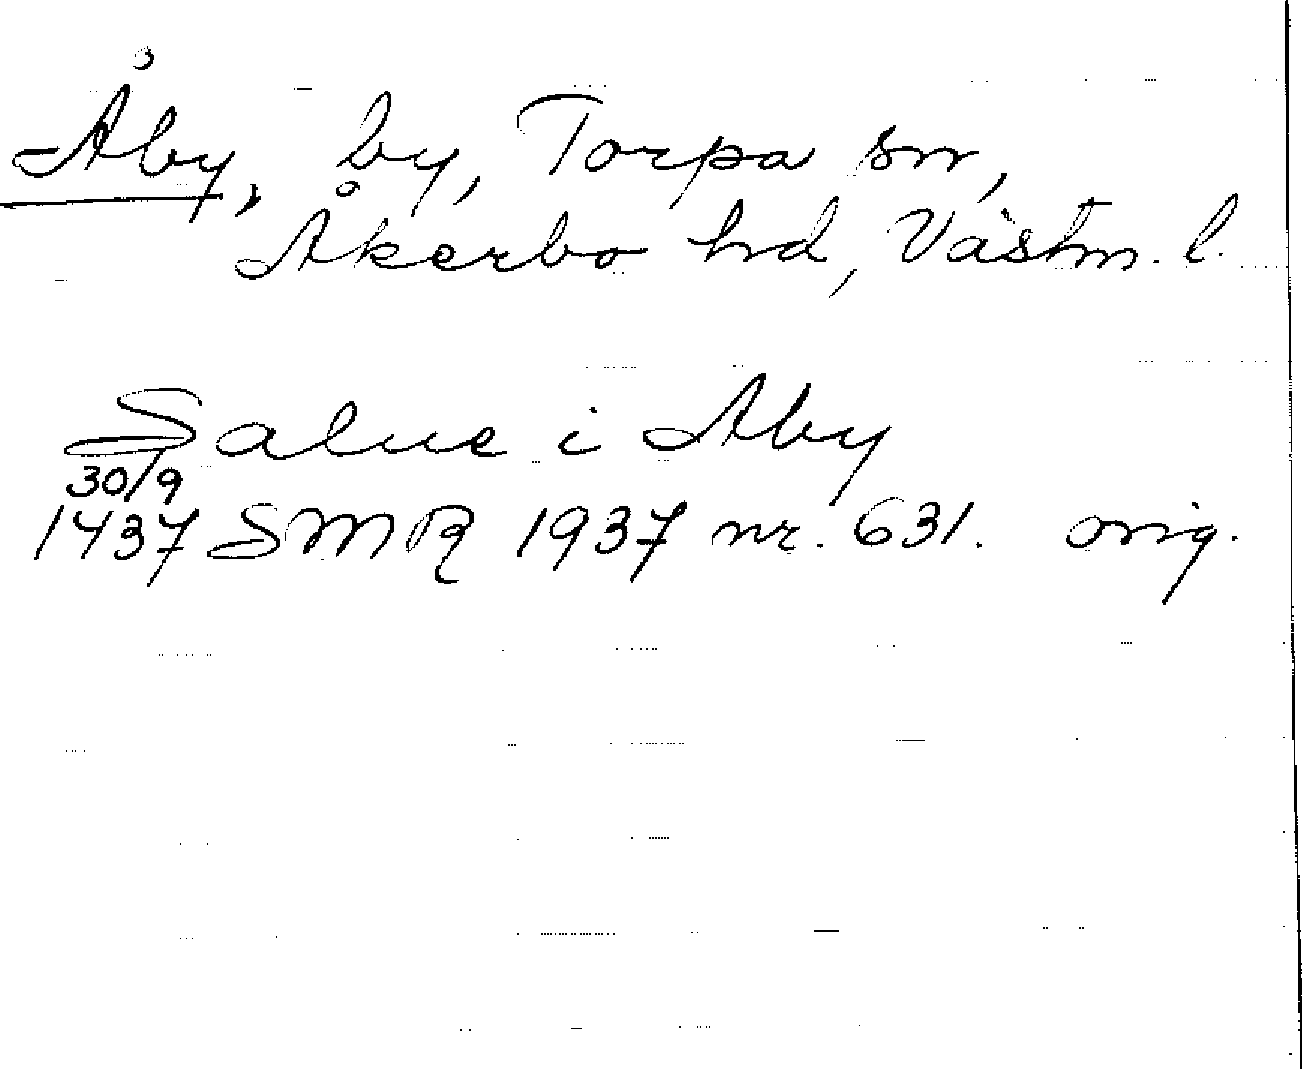 Åby, by, Torpa sn,
Åkerbo hd, Västm. l.
Salue i Aby
30/9
1437 SMR 1937 nr. 631. orig.